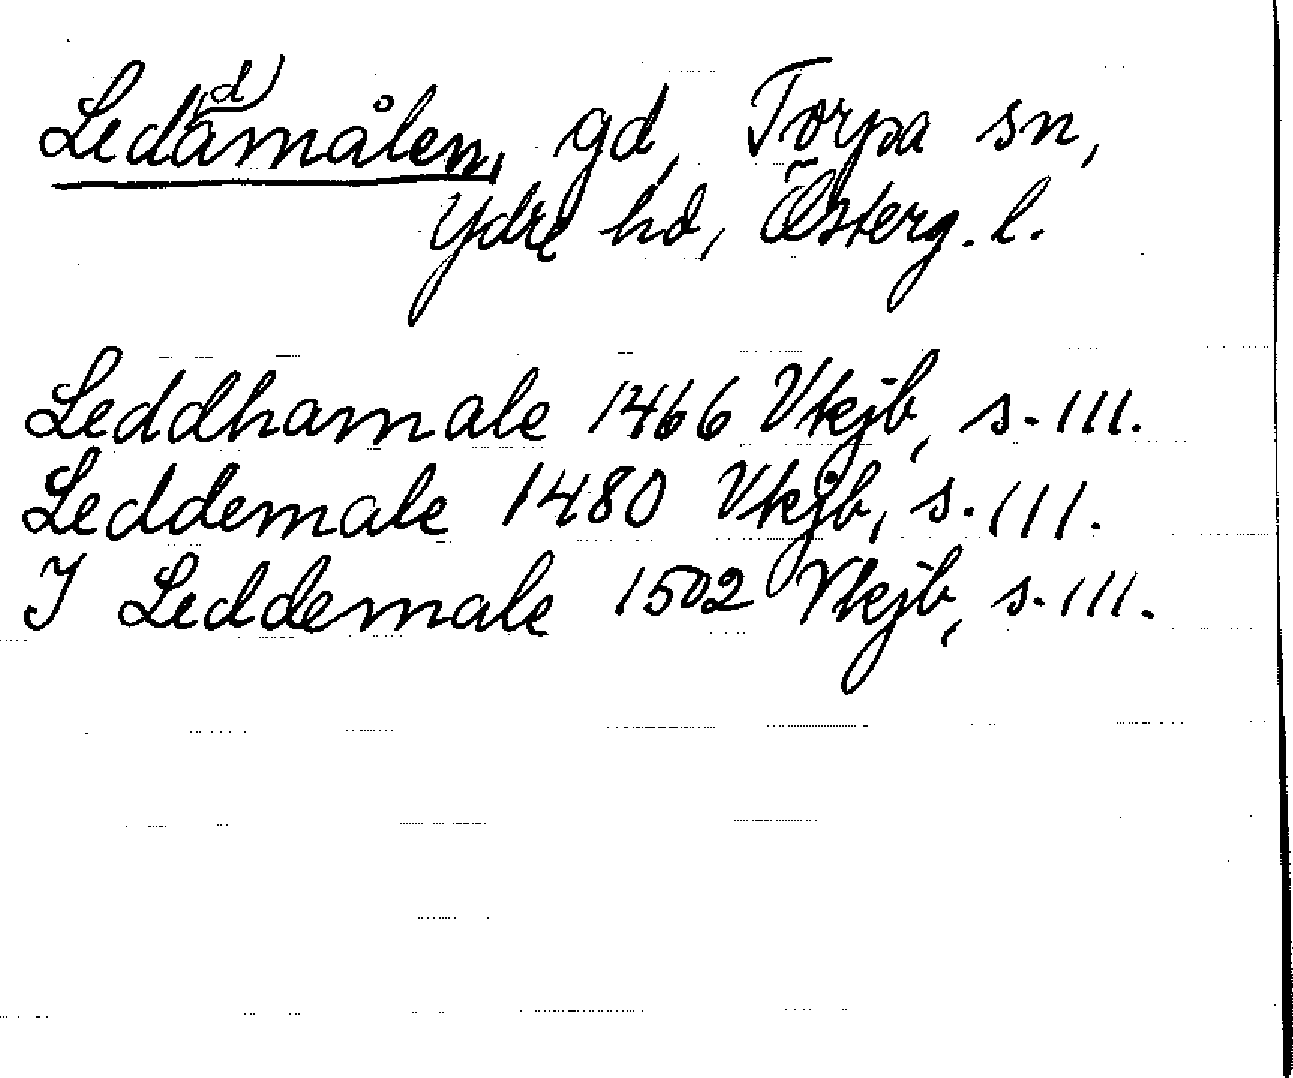 Led(d)amålen, gd, Torpa sn,
Ydre hd, Österg. l.
Leddhamale 1466 Vkjb, s. 111.
Leddemale 1480 Vkjb, s. 111.
I Leddemale 1502 Vkjb, s. 111.